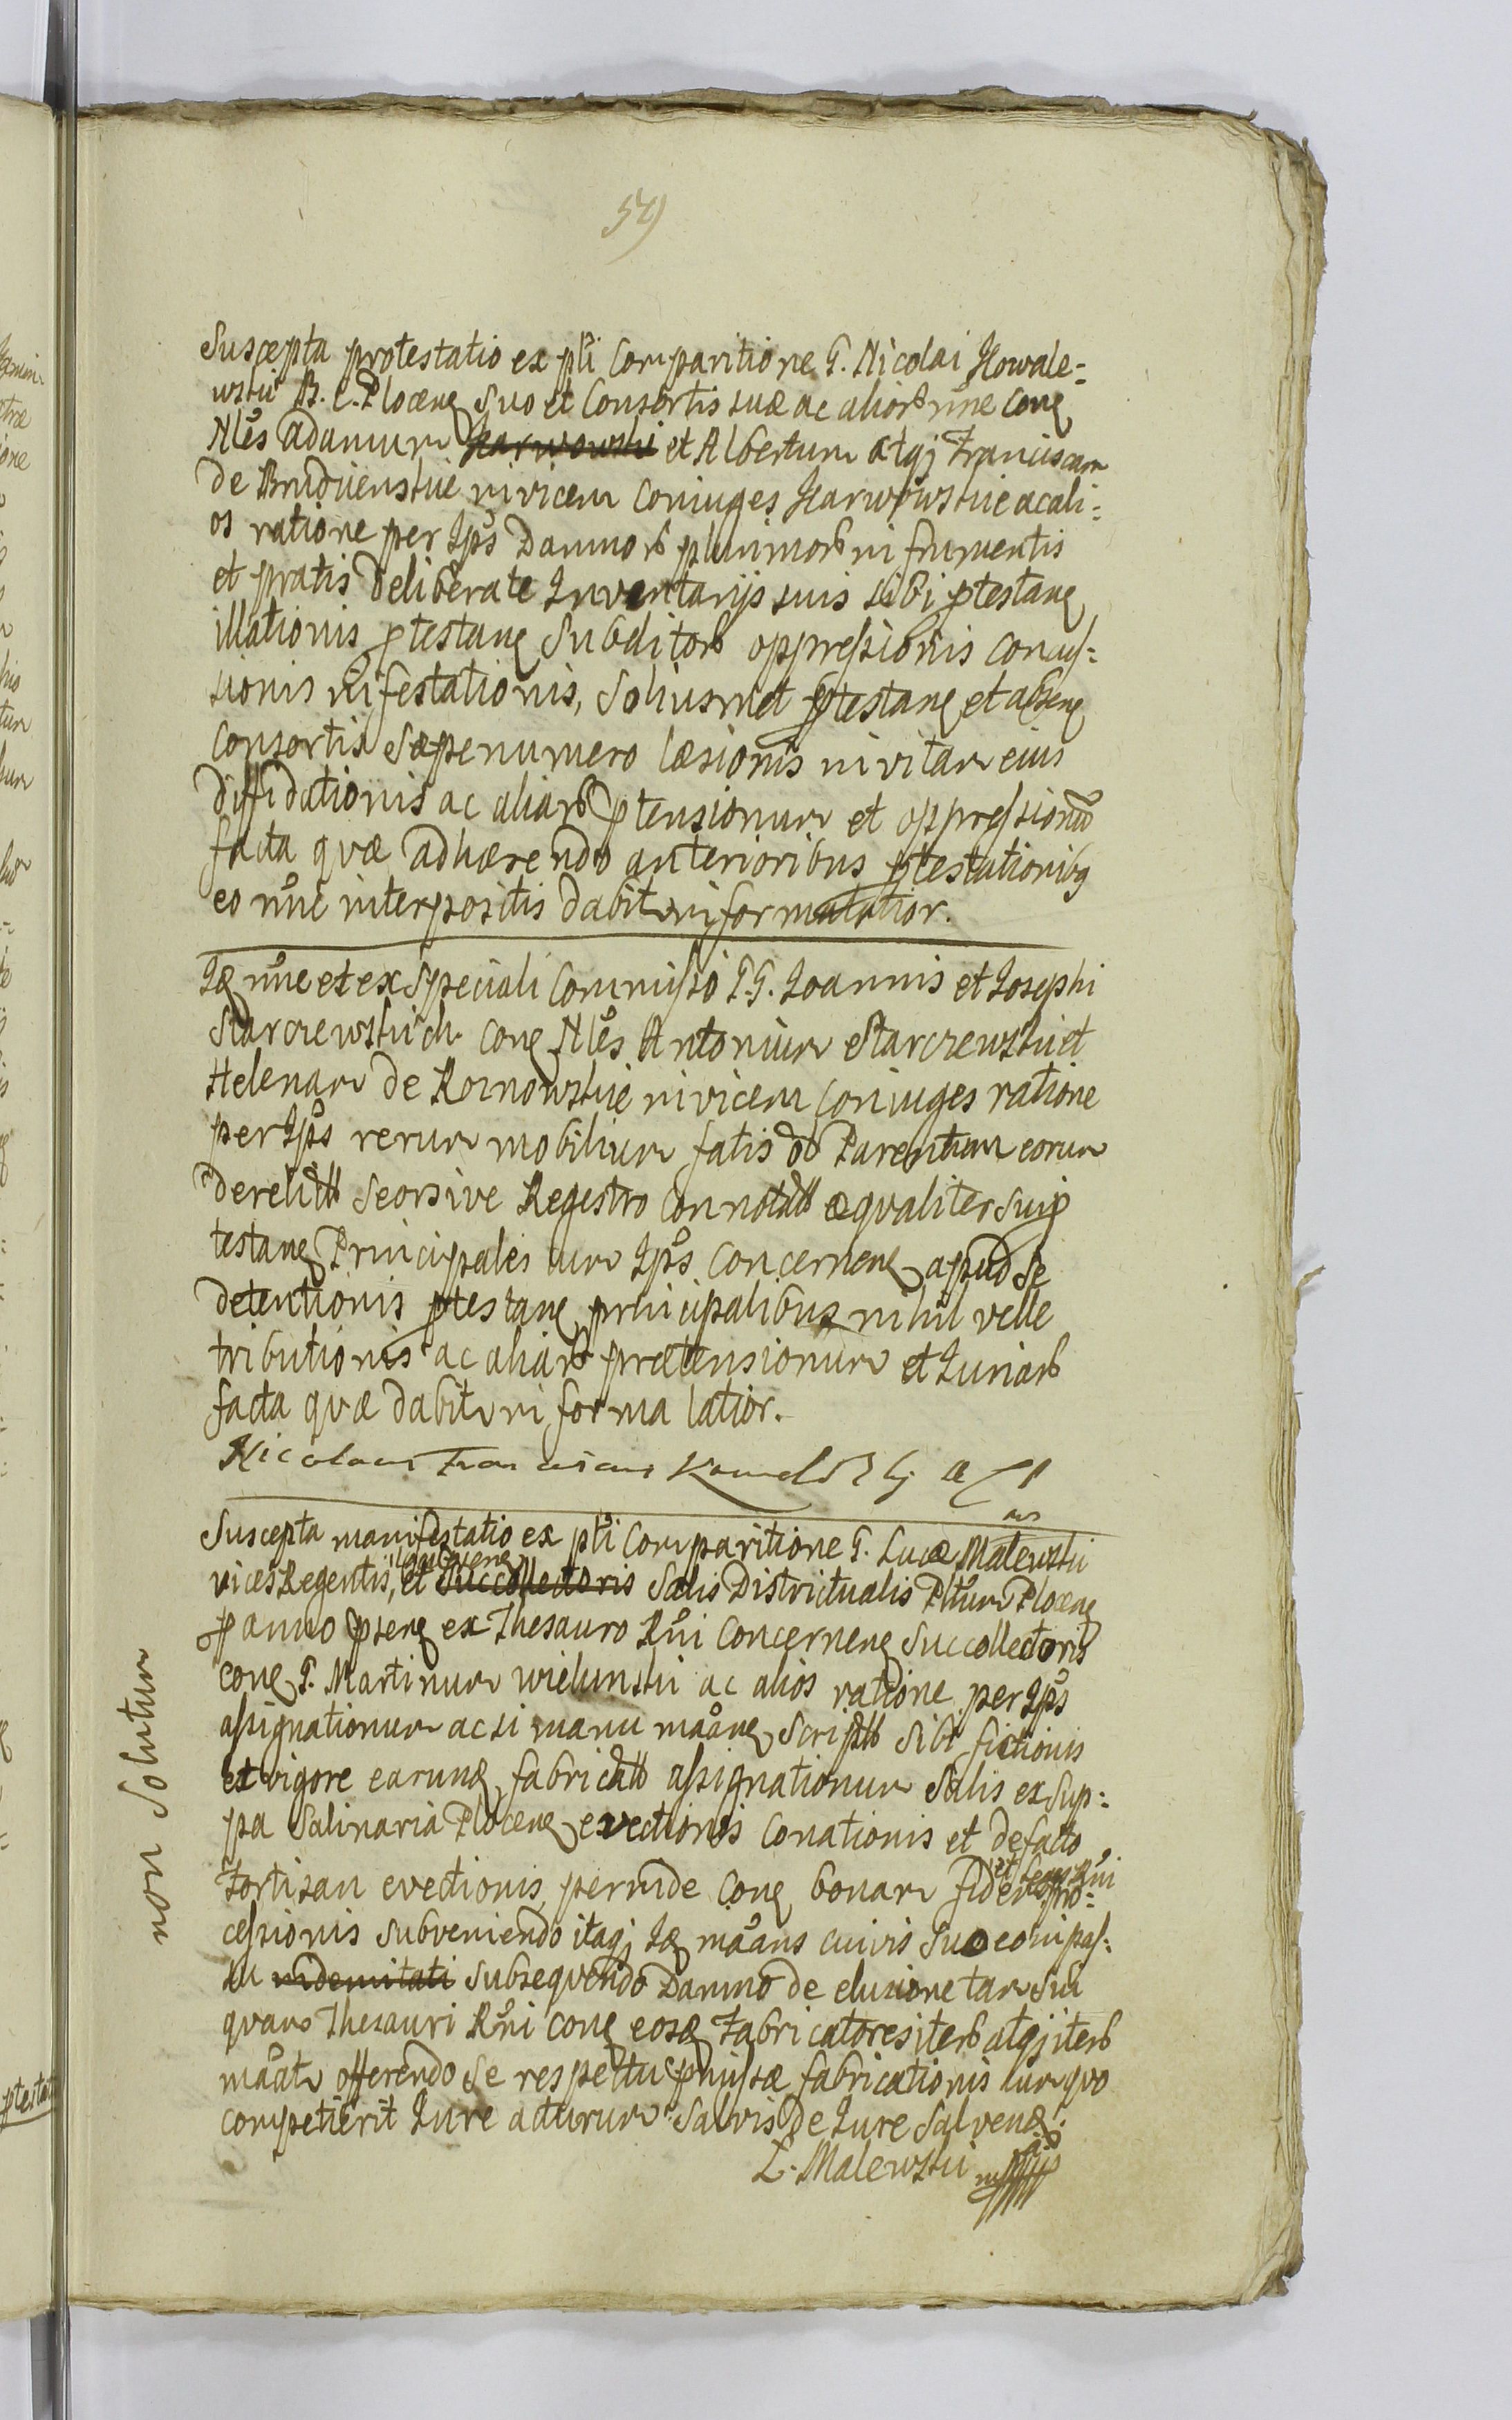 549
Suscepta protestatio ex pti Comparitione G. Nicolai Kowale=
wski B. C. Plocen Suo et Consortis suæ ac alior nne Con
Nles Adamum Karwowski et Albertum atq Franciscam
de Brudzienskie invicem Coniuges Karwowskie ac ali=
os ratione per Ips Damnor plurimor in frumentis
et pratis deliberate Inventarijs suis sibi ptestan
illationis ptestan Subditor oppressionis Concus=
sionis infestationis, Solusmet ptestan et absen
Consortis Sæpenumero læsionis in vitam eius
diffidationis ac aliar ptensionum et oppressionu
facta quæ adhærendo anterioribus ptestationibq
eo nne interpositis dabit in forma latior.
Id nne et ex Speciali Commisso G. G. Ioannis et Iosephi
Starczewskich Con Nles Antonium Starczewski et
Helenam de Roznowskie invicem Coniuges ratione
per Ips rerum mobilium fatis ob Parentum eorum
derelict Seorsive Regestro Connotat æqualiter Suip
testan Principales tum Ips Concernen apud Se
detentionis ptestan principalibus nihil velle
tributionis ac aliar prætensionum et Iuriar
facta quæ dabit in forma latior.
Nicolaus Franciscus Kowalewski
Suscepta manifestatio ex pti Comparitione G. Lucæ Malewski
vices Regentis, et Succollectoris Salis Districtualis Pltum Plocen
p anno psen ex Thesauro Rni Concernen Succollectoris
con G. Martinum Wielunski ac alios ratione per Ips
assignationum ac si manu maan Script Sibi fictionis
et vigore earund fabricat assignationum Salis ex Sup=
pa Salinaria Plocen evectionis Conationis et de facto
Fortisan evectionis perinde Con bonam fidem et Leges Rni pro=
cessionis subveniendo itaq Id maans cuivis suo eo in pas=
su indemnitati Subsequendo Damno de elusione tam Sui
quam Thesauri Rni Con eosd Fabricatores iter atq iter
maat offerendo Se respectu pmissæ fabricationis cum quo
competierit Iure acturum Salvis de Iure Salvend.
L. Malewski mp
non Solutum